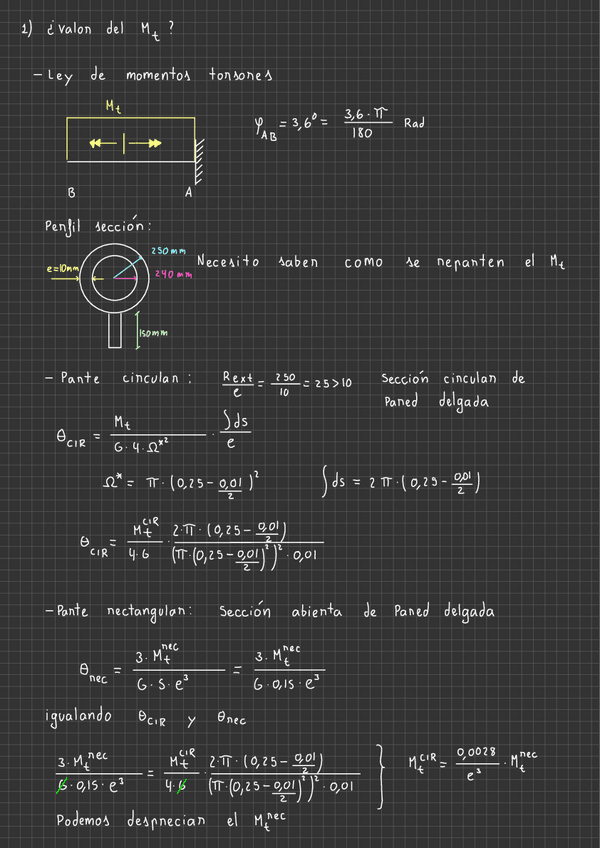 1) ¿Valor del M_t ?
- Ley de momentos torsores
M_t
φ_AB = 3,6° = 3,6·π / 180 Rad
B A
Perfil sección:
250mm
e=10mm
240mm
Necesito saber como se reparten el M_t
150mm
- Parte circular: Rext/e = 250/10 = 25 > 10 Sección circular de
Pared delgada
θ_CIR = M_t / (G·4·Ω*²) · ∫ds / e
Ω* = π·(0,25 - 0,01/2)² ∫ds = 2π·(0,25 - 0,01/2)
θ_CIR = M_t^CIR / (4·G) · 2·π·(0,25 - 0,01/2) / ((π·(0,25 - 0,01/2)²)²·0,01)
- Parte rectangular: Sección abierta de Pared delgada
θ_rec = 3·M_t^rec / (G·S·e³) = 3·M_t^rec / (G·0,15·e³)
igualando θ_CIR y θ_rec
3·M_t^rec / (G·0,15·e³) = M_t^CIR / (4·G) · 2·π·(0,25 - 0,01/2) / ((π·(0,25 - 0,01/2)²)²·0,01) } M_t^CIR = 0,0028 / e³ · M_t^rec
Podemos despreciar el M_t^rec